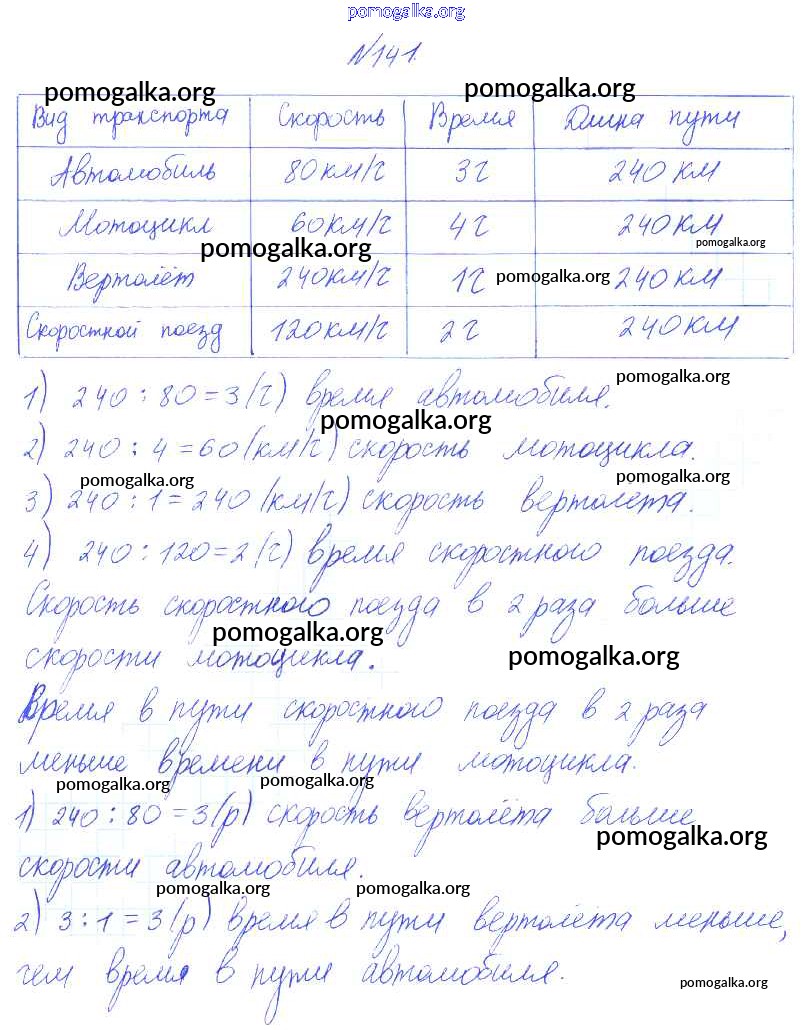 pomogalka.org
№141.
pomogalka.org pomogalka.org
Вид транспорта Скорость Время Длина пути
Автомобиль 80км/ч 3ч 240 км
Мотоцикл 60км/ч 4ч 240км
pomogalka.org pomogalka.org
Вертолёт 240км/ч 1ч 240 км
pomogalka.org
Скоростной поезд 120км/ч 2ч 240км
pomogalka.org
1) 240 : 80 = 3 (ч) время автомобиля.
pomogalka.org
2) 240 : 4 = 60 (км/ч) скорость мотоцикла.
pomogalka.org pomogalka.org
3) 240 : 1 = 240 (км/ч) скорость вертолёта.
4) 240 : 120 = 2 (ч) время скоростного поезда.
Скорость скоростного поезда в 2 раза больше
pomogalka.org pomogalka.org
скорости мотоцикла.
Время в пути скоростного поезда в 2 раза
меньше времени в пути мотоцикла.
pomogalka.org pomogalka.org
1) 240 : 80 = 3 (р) скорость вертолёта больше
pomogalka.org
скорости автомобиля.
pomogalka.org pomogalka.org
2) 3 : 1 = 3 (р) время в пути вертолёта меньше,
чем время в пути автомобиля.
pomogalka.org